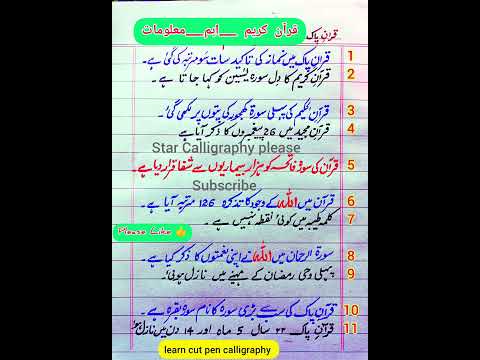 قرآن پاک
قرآن کریم __اہم__معلومات
1 قرآن پاک میں نماز کی تاکید سات سو مرتبہ کی گئی ہے۔
2 قرآن کریم کا دل سورۃ یٰسین کو کہا جاتا ہے۔
3 قرآن حکیم کی پہلی سورۃ کھجور کی پتوں پر لکھی گئی۔
4 قرآن مجید میں 26 پیغمبروں کا ذکر آیا ہے
Star Calligraphy please
5 قرآن کی سورۃ فاتحہ کو ہزار بیماریوں سے شفا قرار دیا ہے۔
Subscribe
6 قرآن میں اللہ کے وجود کا تذکرہ 126 مرتبہ آیا ہے۔
7 کلمہ طیبہ میں کوئی نقطہ نہیں ہے۔
Please Like 👍
8 سورۃ الرحمان میں اللہ نے اپنی نعمتوں کا ذکر کیا ہے۔
9 پہلی وحی رمضان کے مہینے میں نازل ہوئی۔
10 قرآن پاک کی سب سے بڑی سورۃ کا نام سورۃ بقرہ ہے۔
11 قرآن پاک ۲۲ سال 5 ماہ اور 14 دن میں نازل ہوا
learn cut pen calligraphy